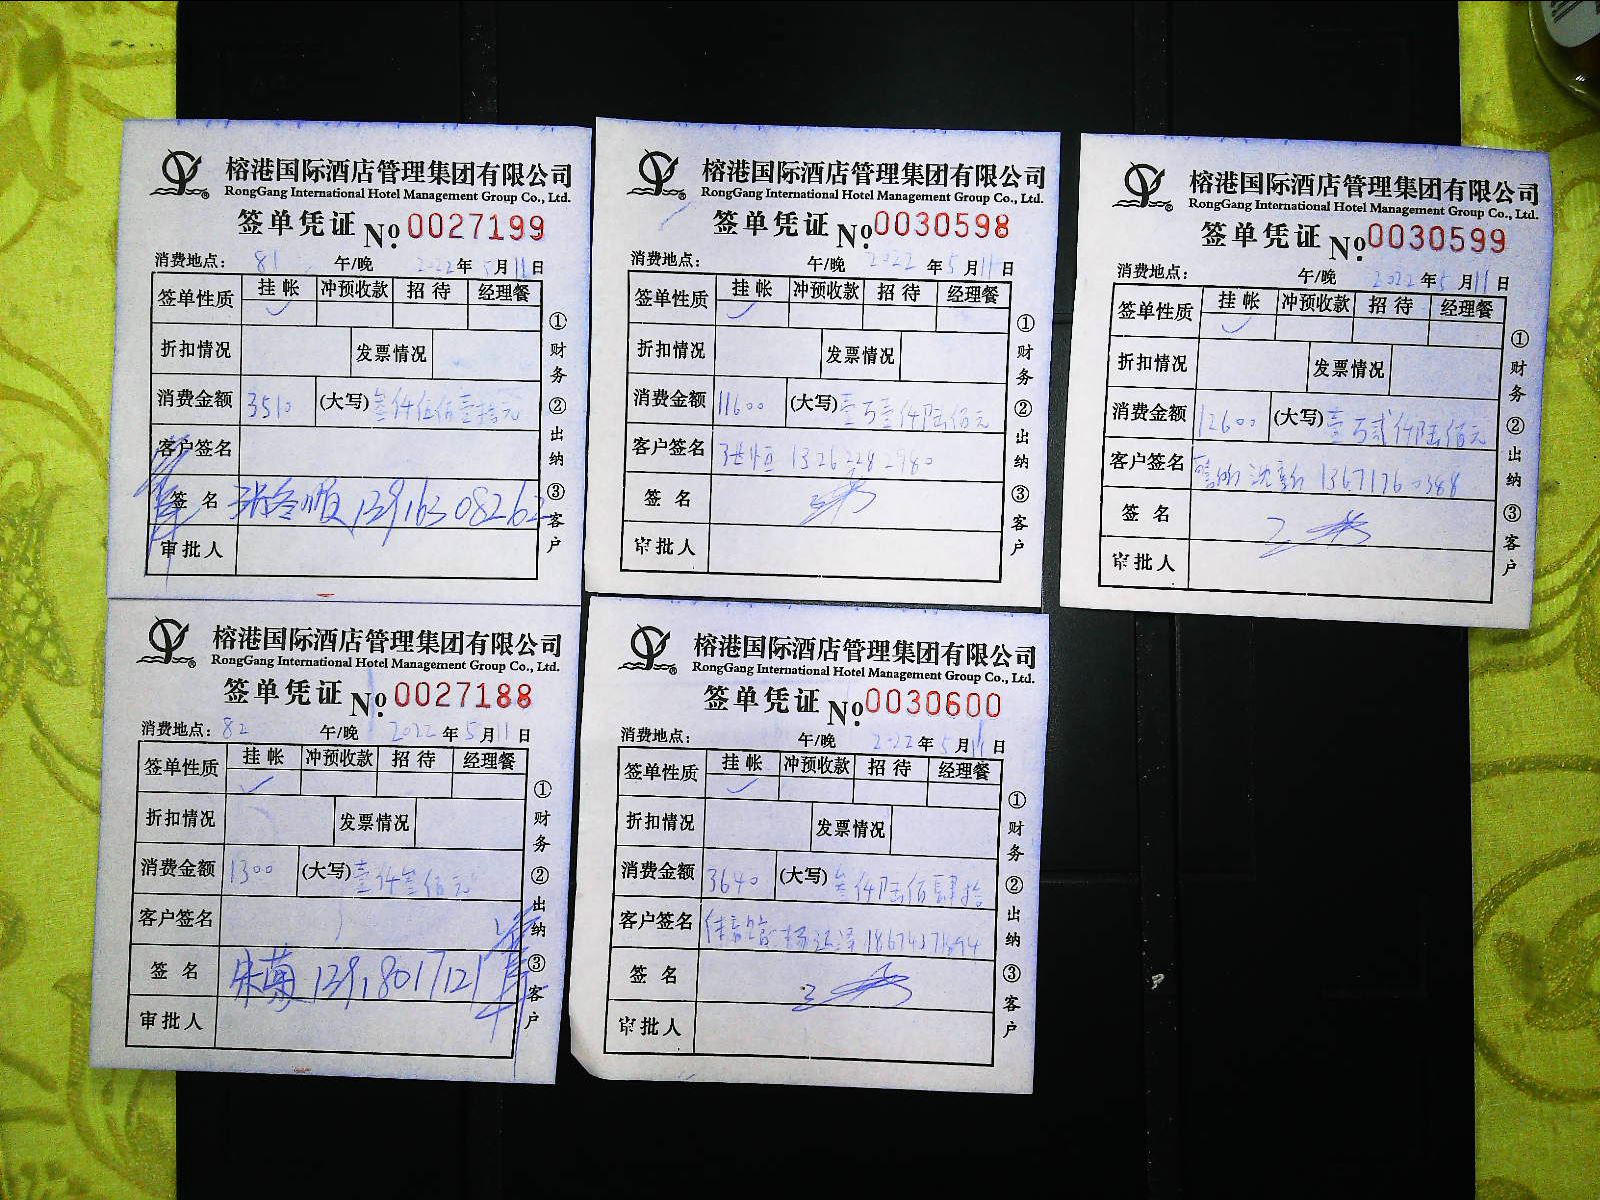 榕港国际酒店管理集团有限公司
RongGang International Hotel Management Group Co., Ltd.
签单凭证 No. 0027199
消费地点： 81 午/晚 2022年5月11日
签单性质 挂帐 冲预收款 招待 经理餐
折扣情况 发票情况
消费金额 3510 (大写) 叁仟伍佰壹拾元
客户签名
签名 13916308262
审批人
①财务 ②出纳 ③客户
榕港国际酒店管理集团有限公司
RongGang International Hotel Management Group Co., Ltd.
签单凭证 No. 0030598
消费地点： 午/晚 2022年5月11日
签单性质 挂帐 冲预收款 招待 经理餐
折扣情况 发票情况
消费金额 11600 (大写) 壹万壹仟陆佰元
客户签名 张恒 13262282980
签名
审批人
①财务 ②出纳 ③客户
榕港国际酒店管理集团有限公司
RongGang International Hotel Management Group Co., Ltd.
签单凭证 No. 0030599
消费地点： 午/晚 2022年5月11日
签单性质 挂帐 冲预收款 招待 经理餐
折扣情况 发票情况
消费金额 12600 (大写) 壹万贰仟陆佰元
客户签名 13671760388
签名
审批人
①财务 ②出纳 ③客户
榕港国际酒店管理集团有限公司
RongGang International Hotel Management Group Co., Ltd.
签单凭证 No. 0027188
消费地点： 82 午/晚 2022年5月11日
签单性质 挂帐 冲预收款 招待 经理餐
折扣情况 发票情况
消费金额 1300 (大写) 壹仟叁佰元
客户签名
签名 朱菊 13918017121
审批人
①财务 ②出纳 ③客户
榕港国际酒店管理集团有限公司
RongGang International Hotel Management Group Co., Ltd.
签单凭证 No. 0030600
消费地点： 午/晚 2022年5月11日
签单性质 挂帐 冲预收款 招待 经理餐
折扣情况 发票情况
消费金额 3640 (大写) 叁仟陆佰肆拾
客户签名
签名
审批人
①财务 ②出纳 ③客户